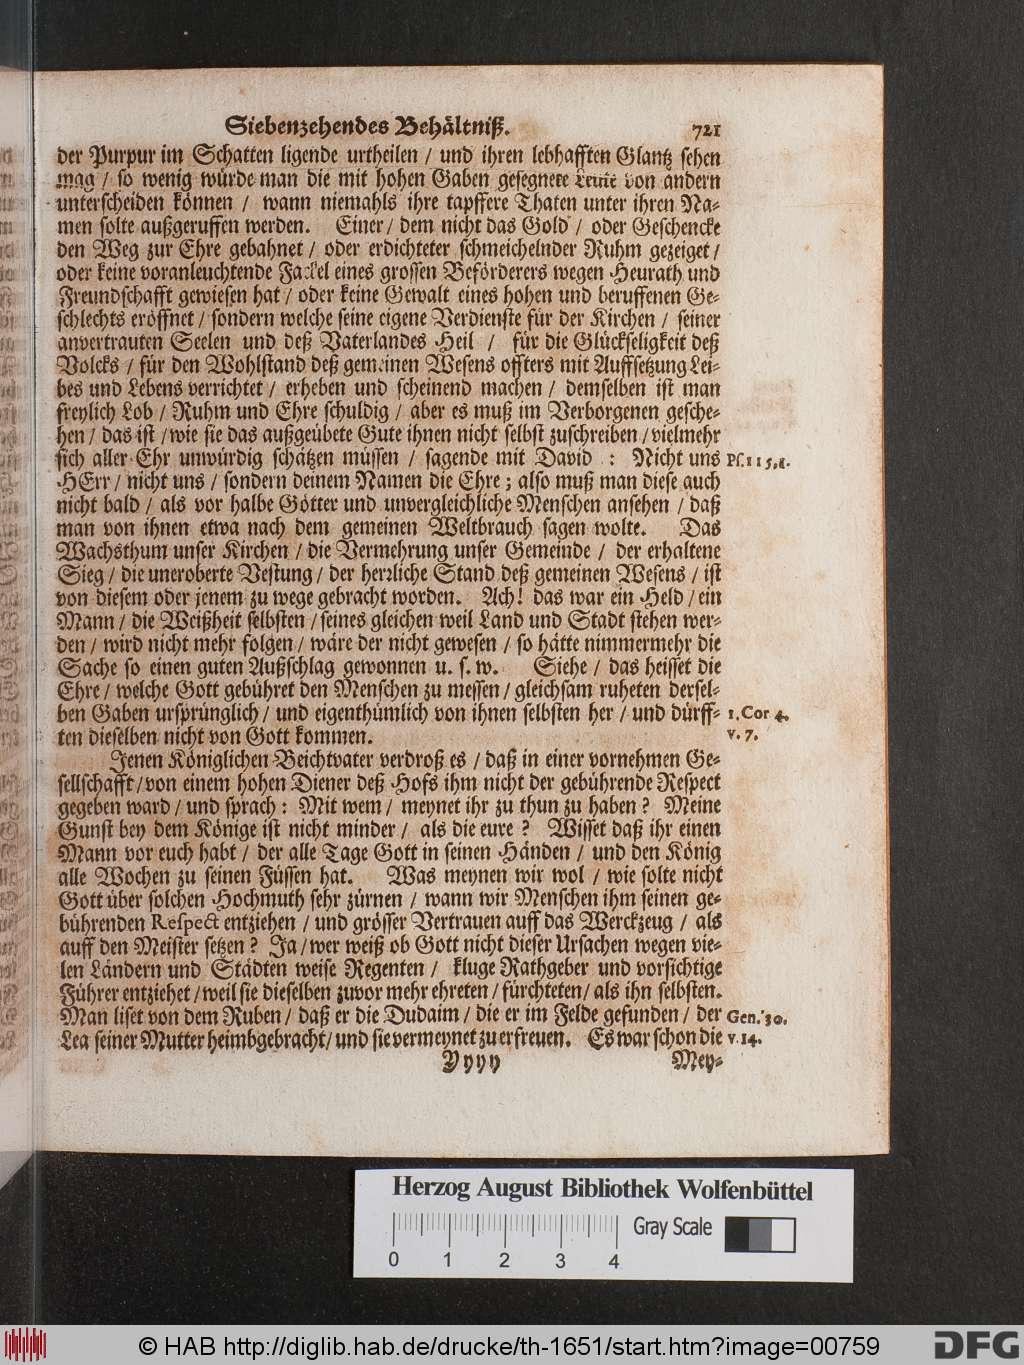 Siebenzehendes Behältniß. 721
der Purpur im Schatten ligende urtheilen / und ihren lebhafften Glantz sehen
mag / so wenig würde man die mit hohen Gaben gesegnete Leute von andern
unterscheiden können / wann niemahls ihre tapffere Thaten unter ihren Na-
men solte außgeruffen werden. Einer / dem nicht das Gold / oder Geschencke
den Weg zur Ehre gebahnet / oder erdichteter schmeichelnder Ruhm gezeiget /
oder keine voranleuchtende Fackel eines grossen Beförderers wegen Heurath und
Freundschafft gewiesen hat / oder keine Gewalt eines hohen und beruffenen Ge-
schlechts eröffnet / sondern welche seine eigene Verdienste für der Kirchen / seiner
anvertrauten Seelen und deß Vaterlandes Heil / für die Glückseligkeit deß
Volcks / für den Wohlstand deß gemeinen Wesens offters mit Auffsetzung Lei-
bes und Lebens verrichtet / erheben und scheinend machen / demselben ist man
freylich Lob / Ruhm und Ehre schuldig / aber es muß im Verborgenen gesche-
hen / das ist / wie sie das außgeübete Gute ihnen nicht selbst zuschreiben / vielmehr
sich aller Ehr unwürdig schätzen müssen / sagende mit David : Nicht uns Ps. 115, 1.
HErr / nicht uns / sondern deinem Namen die Ehre ; also muß man diese auch
nicht bald / als vor halbe Götter und unvergleichliche Menschen ansehen / daß
man von ihnen etwa nach dem gemeinen Weltbrauch sagen wolte. Das
Wachsthum unser Kirchen / die Vermehrung unser Gemeinde / der erhaltene
Sieg / die uneroberte Vestung / der herrliche Stand deß gemeinen Wesens / ist
von diesem oder jenem zu wege gebracht worden. Ach! das war ein Held / ein
Mann / die Weißheit selbsten / seines gleichen weil Land und Stadt stehen wer-
den / wird nicht mehr folgen / wäre der nicht gewesen / so hätte nimmermehr die
Sache so einen guten Außschlag gewonnen u. s. w. Siehe / das heisset die
Ehre / welche Gott gebühret den Menschen zu messen / gleichsam ruheten dersel-
ben Gaben ursprünglich / und eigenthümlich von ihnen selbsten her / und dürff- 1. Cor 4.
ten dieselben nicht von Gott kommen. v. 7.
Jenen Königlichen Beichtvater verdroß es / daß in einer vornehmen Ge-
sellschafft / von einem hohen Diener deß Hofs ihm nicht der gebührende Respect
gegeben ward / und sprach : Mit wem / meynet ihr zu thun zu haben ? Meine
Gunst bey dem Könige ist nicht minder / als die eure ? Wisset daß ihr einen
Mann vor euch habt / der alle Tage Gott in seinen Händen / und den König
alle Wochen zu seinen Füssen hat. Was meynen wir wol / wie solte nicht
Gott über solchen Hochmuth sehr zürnen / wann wir Menschen ihm seinen ge-
bührenden Respect entziehen / und grösser Vertrauen auff das Werckzeug / als
auff den Meister setzen ? Ja / wer weiß ob Gott nicht dieser Ursachen wegen vie-
len Ländern und Städten weise Regenten / kluge Rathgeber und vorsichtige
Führer entziehet / weil sie dieselben zuvor mehr ehreten / fürchteten / als ihn selbsten.
Man liset von dem Ruben / daß er die Dudaim / die er im Felde gefunden / der Gen. 30.
Lea seiner Mutter heimbgebracht / und sie vermeynet zu erfreuen. Es war schon die v. 14.
Yyyy Mey-
Herzog August Bibliothek Wolfenbüttel
0 1 2 3 4 Gray Scale
© HAB http://diglib.hab.de/drucke/th-1651/start.htm?image=00759 DFG